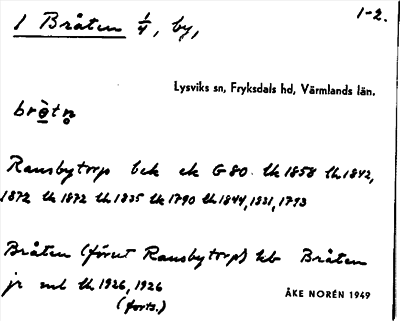 1-2.
1 Bråten 1/4, by,
Lysviks sn, Fryksdals hd, Värmlands län.
Ransbytorp bck ek G80 Uk 1858 Uk 1842,
1872 Uk 1872 Uk 1835 Uk 1790 Uk 1844, 1831, 1793
Bråten (förut Ransbytorp) kb Bråten
jr ml Uk 1926, 1926
(forts.)
ÅKE NORÉN 1949